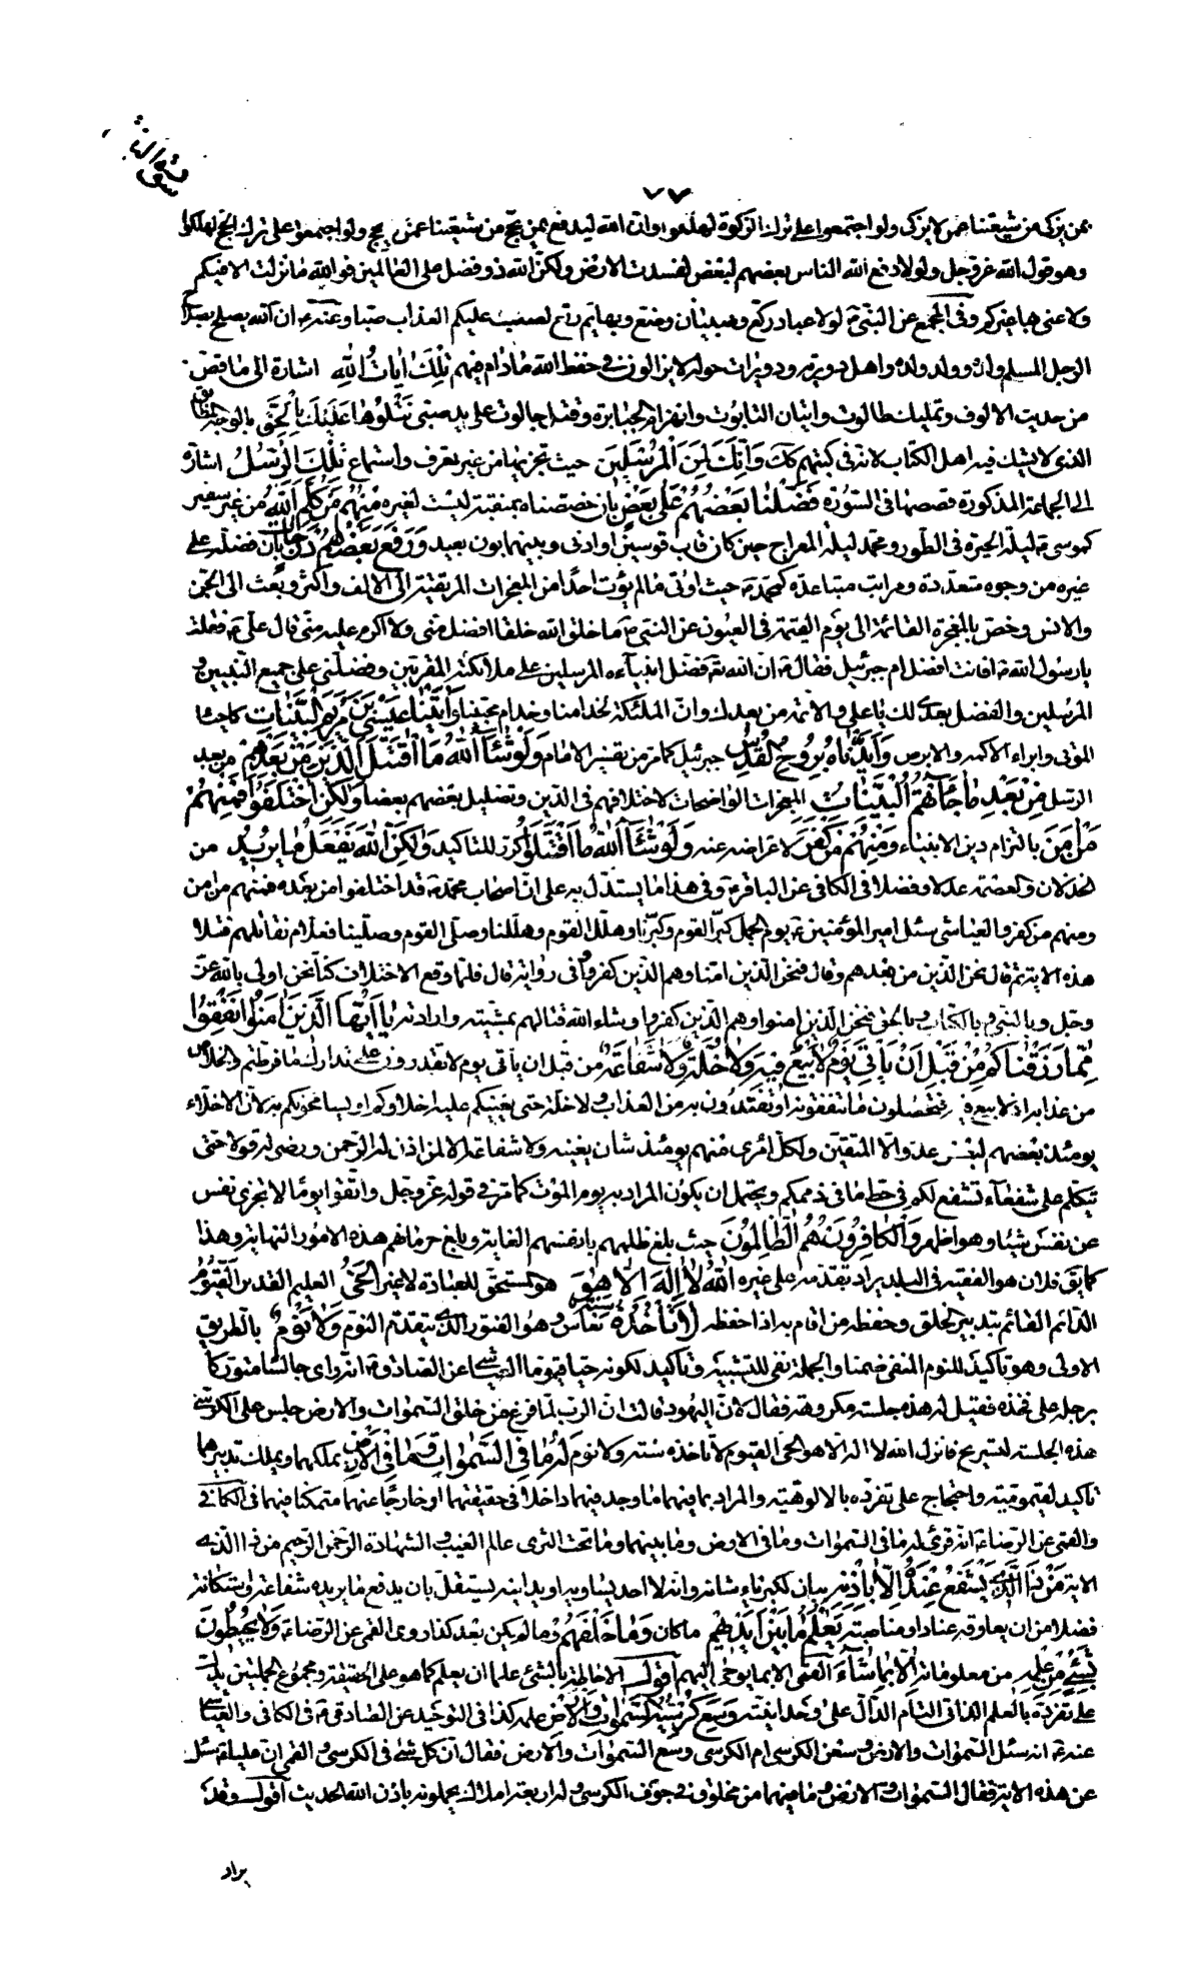 سورة البقرة
٧٧
بمن يزكى من شيعتنا عمن لا يزكى ولو اجتمعوا على ترك الزكوة لهلكوا وان الله ليدفع بمن يحج من شيعتنا عمن لا يحج ولو اجتمعوا على ترك الحج لهلكوا
وهو قول الله عز وجل ولولا دفع الله الناس بعضهم ببعض لفسدت الارض ولكن الله ذو فضل على العالمين فو الله ما نزلت الا فيكم
ولا عنى بها غيركم وفى المجمع عن النبى ص لولا عباد ركع وصبيان رضع وبهايم رتع لصب عليكم العذاب صبا وعنه ص ان الله يصلح بصلاح
الرجل المسلم ولده وولد ولده واهل دويرته ودويرات حوله لا يزالون فى حفظ الله ما دام فيهم تلك ايات الله اشارة الى ما قص
من حديث الالوف وتمليك طالوت واتيان التابوت وانهزام الجبابرة وقتل جالوت على يد صبى نتلوها عليك بالحق بالوجه المطابق
الذى لا يشك فيه اهل الكتاب لانه فى كتبهم كك وانك لمن المرسلين حيث تخبر بها من غير تعرف واستماع تلك الرسل اشارة
الى الجماعة المذكورة قصصها فى السورة فضلنا بعضهم على بعض بان خصصناه بمنقبة ليست لغيره منهم من كلم الله من غير سفير
كموسى ع ليلة الحيرة فى الطور ومحمد ليلة المعراج حين كان قاب قوسين او ادنى وبينهما بون بعيد ورفع بعضهم درجات بان فضله على
غيره من وجوه متعددة ومراتب متباعدة كمحمد ص حيث اوتى ما لم يؤت احد من المعجزات المرتقية الى الالف واكثر وبعث الى الجن
والانس وخص بالمعجزة القائمة الى يوم القيمة فى العيون عن النبى ص ما خلق الله خلقا افضل منى ولا اكرم عليه منى قال على ع فقلت
يا رسول الله ص افانت افضل ام جبرئيل فقال ص ان الله تع فضل انبياءه المرسلين على ملائكته المقربين وفضلنى على جميع النبيين و
المرسلين والفضل بعدى لك يا على وللائمة من بعدك وان الملئكة لخدامنا وخدام محبينا واتينا عيسى بن مريم البينات كاحياء
الموتى وابراء الاكمه والابرص وايدناه بروح القدس جبرئيل كما مر من تفسير الامام ولو شاء الله ما اقتتل الذين من بعدهم من بعد
الرسل من بعد ما جائتهم البينات المعجزات الواضحات لاختلافهم فى الدين وتضليل بعضهم بعضا ولكن اختلفوا فمنهم
من امن بالتزام دين الانبياء ومنهم من كفر لاعراضه عنه ولو شاء الله ما اقتتلوا كرر للتاكيد ولكن الله يفعل ما يريد من
الخذلان والعصمة عدلا وفضلا فى الكافى عن الباقر ع وفى هذا ما يستدل به على ان اصحاب محمد ص قد اختلفوا من بعده فمنهم من امن
ومنهم من كفر والعياشى سئل امير المؤمنين ع يوم الجمل كبر القوم وكبرنا وهلل القوم وهللنا وصلى القوم وصلينا فعلام نقاتلهم فتلا
هذه الاية ثم قال نحن الذين من بعدهم وقال فنحن الذين امنا وهم الذين كفروا وفى رواية قال فلما وقع الاختلاف كنا نحن اولى بالله عز
وجل وبالنبى وبالكتاب وبالحق فنحن الذين امنوا وهم الذين كفروا وشاء الله قتالهم بمشيته وارادته يا ايها الذين امنوا انفقوا
مما رزقناكم من قبل ان ياتى يوم لا بيع فيه ولا خلة ولا شفاعة من قبل ان ياتى يوم لا تقدرون على تدارك ما فرطتم والخلاص
من عذابه اذ لا بيع فيه فتحصلون ما تنفقونه او تفتدون به من العذاب ولا خلة حتى يعينكم عليه اخلاؤكم او يسامحونكم به لان الاخلاء
يومئذ بعضهم لبعض عدو الا المتقين ولكل امرئ منهم يومئذ شان يغنيه ولا شفاعة الا لمن اذن له الرحمن ورضى له قولا حتى
تتكلم على شفعاء تشفع لكم فى حط ما فى ذممكم ويحتمل ان يكون المراد به يوم الموت كما مر فى قوله عز وجل واتقوا يوما لا تجزى نفس
عن نفس شيئا وهو اظهر والكافرون هم الظالمون حيث بلغ ظلمهم بانفسهم الغاية وبلغ حرمانهم هذه الامور النهاية وهذا
كما يق فلان هو الفقيه فى البلد يراد تقدمه على غيره الله لا اله الا هو هو المستحق للعبادة لا غير الحى العليم القدير القيوم
الدائم القائم بتدبير الخلق وحفظه من اقام به اذا حفظه لا تأخذه سنة نعاس وهو الفتور الذى يتقدم النوم ولا نوم بالطريق
الاولى وهو تاكيد للنوم المنفى ضمنا والجملة نفى للتشبيه وتاكيد لكونه حيا قيوما العياشى عن الصادق ع انه راى جالسا متوركا
برجله على فخذه فقيل له هذه جلسة مكروهة فقال لا ان اليهود قالت ان الرب لما فرغ من خلق السموات والارض جلس على الكرسى
هذه الجلسة ليستريح فانزل الله لا اله الا هو الحى القيوم لا تاخذه سنة ولا نوم له ما فى السموات وما فى الارض يملكهما ويملك تدبيرهما
تاكيد لقيوميته واحتجاج على تفرده بالالوهية والمراد بما فيهما ما وجد فيهما داخلا فى حقيقتهما او خارجا عنهما متمكنا فيهما فى الكافى
والقمى عن الرضا ع انه قرئ له ما فى السموات وما فى الارض وما بينهما وما تحت الثرى عالم الغيب والشهادة الرحمن الرحيم من ذا الذى
الاية من ذا الذى يشفع عنده الا باذنه بيان لكبرياء شانه وانه لا احد يساويه او يدانيه يستقل بان يدفع ما يريده شفاعة واستكانة
فضلا من ان يعاوقه عنادا ومناصبة يعلم ما بين ايديهم ما كان وما خلفهم وما لم يكن بعد كذا روى القمى عن الرضا ع ولا يحيطون
بشئ من علمه من معلوماته الا بما شاء القمى الا بما يوحى اليهم اقول الاحاطة بالشئ علما ان يعلم كما هو على الحقيقة ومجموع الجملتين يدل
على تفرده بالعلم الذاتى التام الدال على وحدانيته وسع كرسيه السموات والارض علمه كذا فى التوحيد عن الصادق ع وفى الكافى والعياشى
عنه ع انه سئل السموات والارض وسعن الكرسى ام الكرسى وسع السموات والارض فقال ان كل شئ فى الكرسى والقمى ان عليا ع سئل
عن هذه الاية فقال السموات والارض وما فيهما من مخلوق فى جوف الكرسى وله اربعة املاك يحملونه باذن الله الحديث اقول وقد
يراد